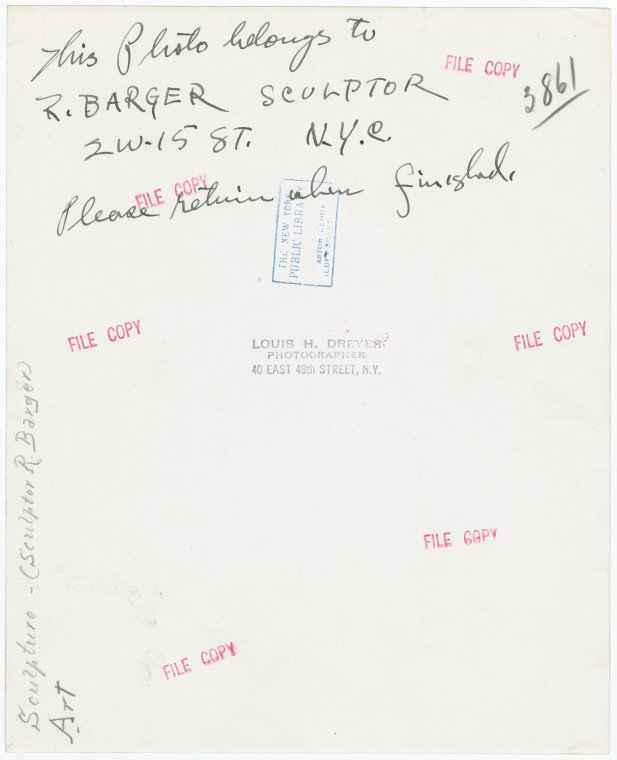 This Photo belongs to
R. BARGER SCULPTOR
2 W-15 ST. N.Y.C.
Please return when finished.
FILE COPY
3861
FILE COPY
THE NEW YORK
PUBLIC LIBRARY
ASTOR LENOX
FILE COPY
LOUIS H. DREYER
PHOTOGRAPHER
40 EAST 49th STREET, N.Y.
FILE COPY
FILE COPY
FILE COPY
Sculpture - (Sculptor R. Barger)
Art